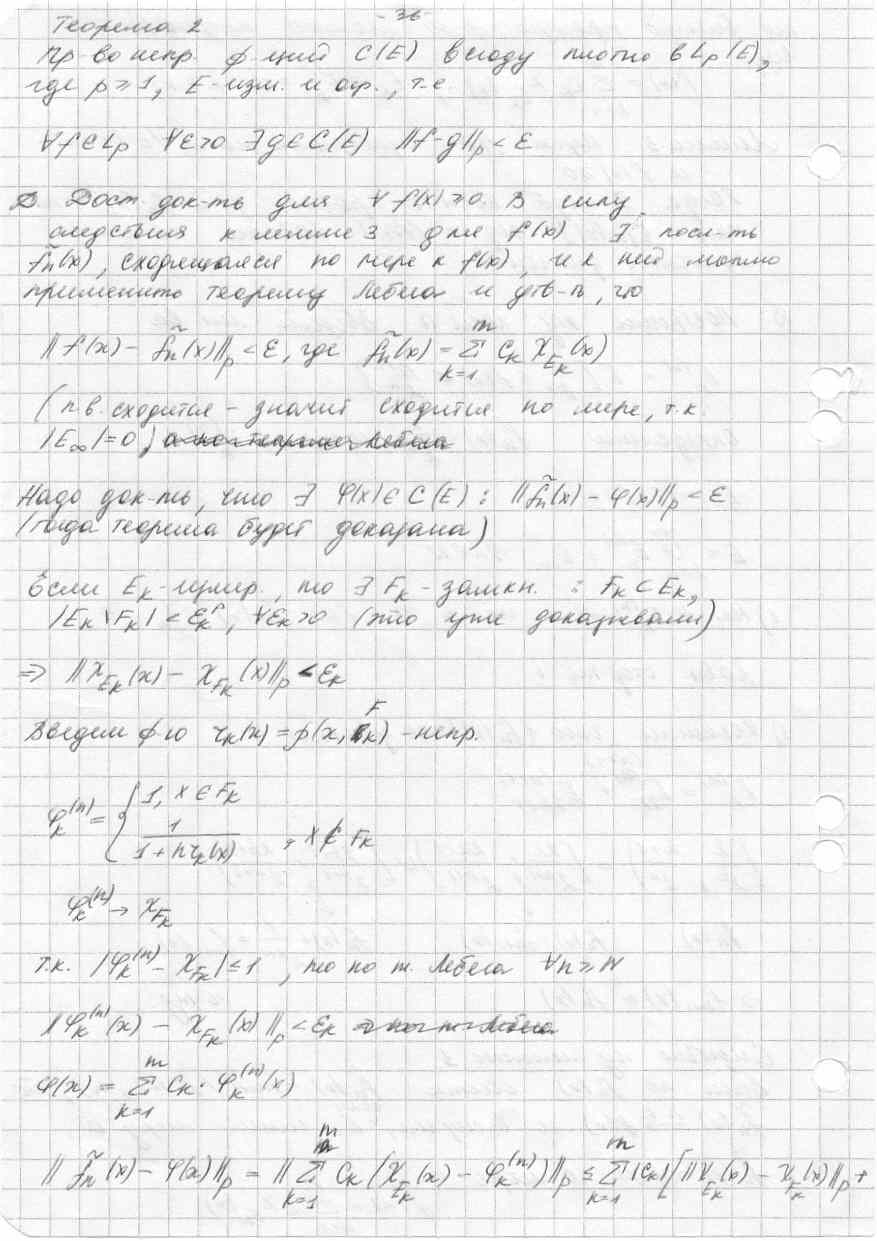 - 36 -
Теорема 2
Пр-во непр. ф-ций C(E) всюду плотно в Lp(E),
где p ≥ 1, E - изм. и огр., т.е.
∀f∈Lp ∀ε>0 ∃g∈C(E) ||f-g||p < ε
Д Дост. док-ть для ∀ f(x) ≥ 0. В силу
следствия к лемме 3 для f(x) ∃ посл-ть
f̃n(x), сходящаяся по мере к f(x), и к ней можно
применить теорему Лебега и утв-ть, что
||f(x) - f̃n(x)||p < ε, где f̃n(x) = Σ_{k=1}^{m} Ck χ_{Ek}(x)
(п.в. сходится - значит сходится по мере, т.к.
|E∞|=0)
Надо док-ть, что ∃ φ(x)∈C(E) : ||f̃n(x) - φ(x)||p < ε
(тогда теорема будет доказана)
Если Ek - измер., то ∃ Fk - замкн. : Fk ⊂ Ek,
|Ek \ Fk| < εk^p, ∀εk>0 (это уже доказывали)
=> ||χ_{Ek}(x) - χ_{Fk}(x)||p < εk
Введем ф-ю rk(x) = ρ(x, Fk) - непр.
φk^(n) = { 1, x ∈ Fk
1/(1+n rk(x)), x ∉ Fk
φk^(n) → χ_{Fk}
т.к. |φk^(n) - χ_{Fk}| ≤ 1, то по т. Лебега ∀n ≥ N
||φk^(n)(x) - χ_{Fk}(x)||p < εk
φ(x) = Σ_{k=1}^{m} Ck · φk^(n)(x)
||f̃n(x) - φ(x)||p = ||Σ_{k=1}^{m} Ck (χ_{Ek}(x) - φk^(n))||p ≤ Σ_{k=1}^{m} |Ck| [||χ_{Ek}(x) - χ_{Fk}(x)||p +